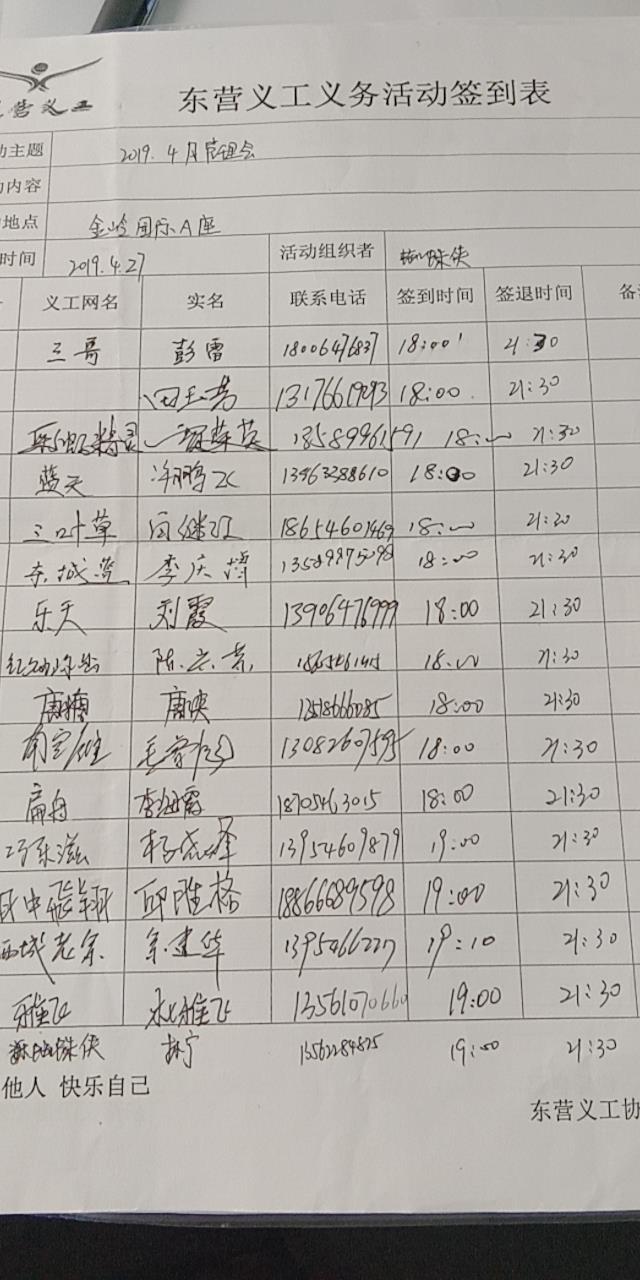 营义工
东营义工义务活动签到表
动主题 2019.4月管理会
内容
地点 金岭国际A座
时间 2019.4.27 活动组织者 蜘蛛侠
义工网名 实名 联系电话 签到时间 签退时间 备
三哥 彭雷 18006476837 18:00 21:30
田玉芳 13176619093 18:00 21:30
13589961591 18:00 21:30
蓝天 许鹏飞 13963288610 18:00 21:30
三叶草 18654601469 18:00 21:20
东城 李庆博 18:00 21:30
乐天 刘霞 13906476999 18:00 21:30
陈 18:00 21:30
唐糖 唐爽 18:00 21:30
13082607595 18:00 21:30
扁舟 李海霞 18705463015 18:00 21:30
杨 13954609879 19:00 21:30
民中飛翔 邱胜格 18866689598 19:00 21:30
西城老宗 宗建华 19:10 21:30
雅飞 雅飞 13561070660 19:00 21:30
蜘蛛侠 林宁 13562284825 19:00 21:30
他人 快乐自己
东营义工协